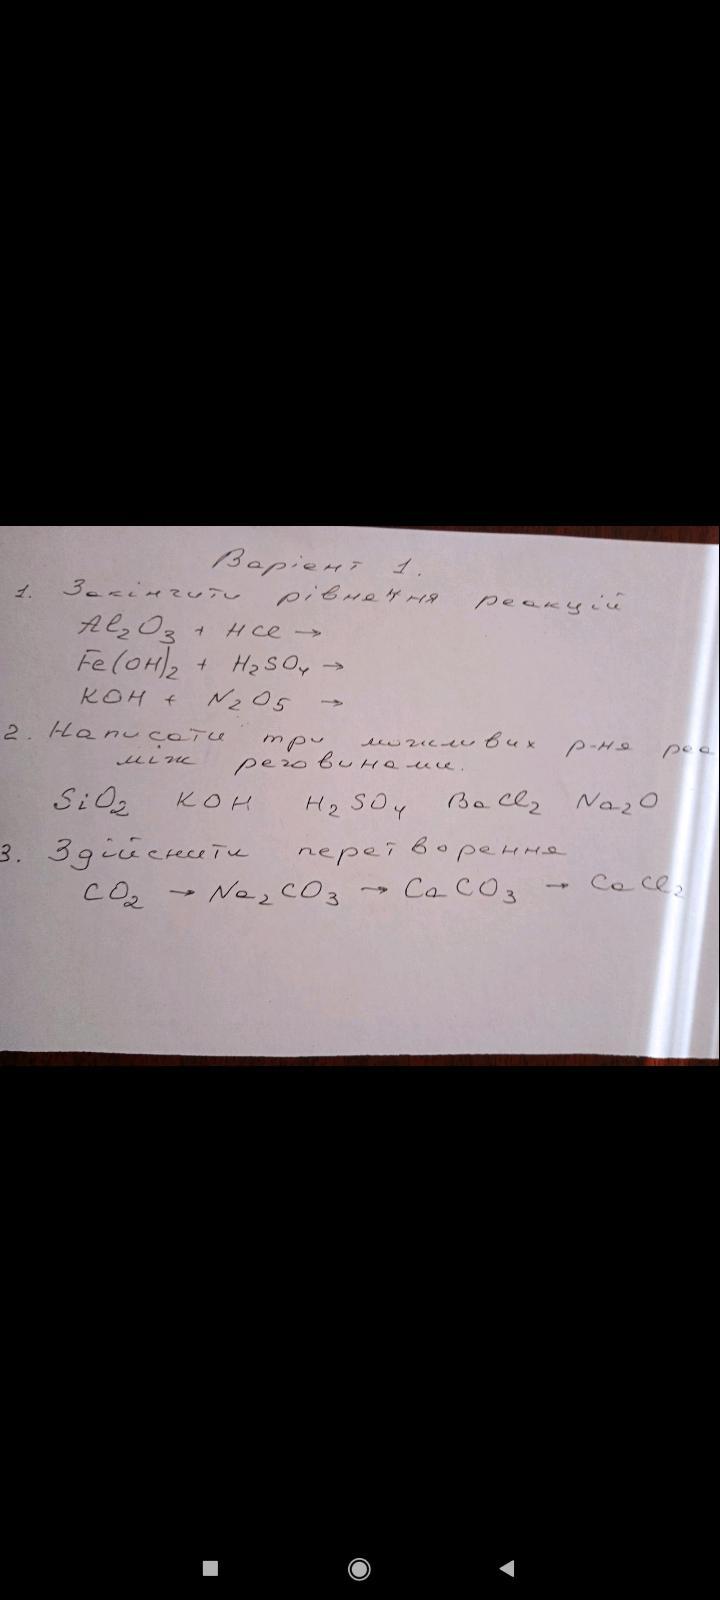 Варіант 1.
1. Закінчити рівняння реакцій
Al₂O₃ + HCl →
Fe(OH)₂ + H₂SO₄ →
KOH + N₂O₅ →
2. Написати три можливих р-ня реа
між речовинами.
SiO₂ KOH H₂SO₄ BaCl₂ Na₂O
3. Здійснити перетворення
CO₂ → Na₂CO₃ → CaCO₃ → CaCl₂